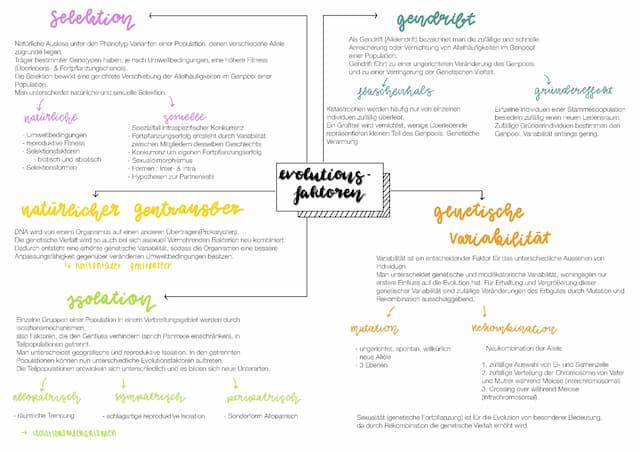 selektion
Natürliche Auslese unter den Phänotyp-Varianten einer Population, denen verschiedene Allele
zugrunde liegen.
Träger bestimmter Genotypen haben, je nach Umweltbedingungen, eine höhere Fitness
(Überlebens- & Fortpflanzungschancen).
Die Selektion bewirkt eine gerichtete Verschiebung der Allelhäufigkeiten im Genpool einer
Population.
Man unterscheidet natürliche und sexuelle Selektion.
natürliche
- Umweltbedingungen
- reproduktive Fitness
- Selektionsfaktoren
- biotisch und abiotisch
- Selektionsformen
sexuelle
- Spezialfall intraspezifischer Konkurrenz
- Fortpflanzungserfolg entsteht durch Variabilität
zwischen Mitgliedern desselben Geschlechts
- Konkurrenz um eigenen Fortpflanzungserfolg
- Sexualdimorphismus
- Formen : Inter- & Intra
- Hypothesen zur Partnerwahl
gendrift
Als Gendrift (Allelendrift) bezeichnet man die zufällige und schnelle
Anreicherung oder Vernichtung von Allelhäufigkeiten im Genpool
einer Population.
Gendrift führt zu einer ungerichteten Veränderung des Genpools
und zu einer Verringerung der Genetischen Vielfalt.
flaschenhals
Katastrophen werden häufig nur von einzelnen
Individuen zufällig überlebt.
Ein Großteil wird vernichtet, wenige Überlebende
repräsentieren kleinen Teil des Genpools. Genetische
Verarmung
gründereffekt
Einzelne Individuen einer Stammespopulation
besiedeln zufällig einen neuen Lebensraum.
Zufällige Gründerindividuen bestimmen den
Genpool. Variabilität anfangs gering.
evolutions-
faktoren
natürlicher gentransfer
DNA wird von einem Organismus auf einen anderen Übertragen(Prokaryoten).
Die genetische Vielfalt wird so auch bei sich asexuell Vermehrenden Bakterien neu kombiniert.
Dadurch entsteht eine erhöhte genetische Variabilität, sodass die Organismen eine bessere
Anpassungsfähigkeit gegenüber veränderten Umweltbedingungen besitzen.
↳ horizontaler gentransfer
genetische
variabilität
Variabilität ist ein entscheidender Faktor für das unterschiedliche Aussehen von
Individuen.
Man unterscheidet genetische und modifikatorische Variabilität, wohingegen nur
erstere Einfluss auf die Evolution hat. Für Erhaltung und Vergrößerung dieser
genetischer Variabilität sind zufällige Veränderungen des Erbguts durch Mutation und
Rekombination ausschlaggebend.
mutation
- ungerichtet, spontan, willkürlich
- neue Allele
- 3 Ebenen
rekombination
- Neukombination der Allele
1. zufällige Auswahl von Ei- und Samenzelle
2. zufällige Verteilung der Chromosome von Vater
und Mutter während Meiose (interchromosomal)
3. Crossing over während Meiose
(intrachromosomal)
Sexualität (genetische Fortpflanzung) ist für die Evolution von besonderer Bedeutung,
da durch Rekombination die genetische Vielfalt erhöht wird.
isolation
Einzelne Gruppen einer Population in einem Verbreitungsgebiet werden durch
Isolationsmechanismen,
also Faktoren, die den Genfluss verhindern (sprich Panmixie einschränken), in
Teilpopulationen getrennt.
Man unterscheidet geografische und reproduktive Isolation. In den getrennten
Populationen können nun unterschiedliche Evolutionsfaktoren auftreten.
Die Teilpopulationen entwickeln sich unterschiedlich und es bilden sich neue Unterarten.
allopatrisch
- räumliche Trennung
sympatrisch
- schlagartige reproduktive Isolation
peripatrisch
- Sonderform Allopatrisch
→ isolationsmechanismen